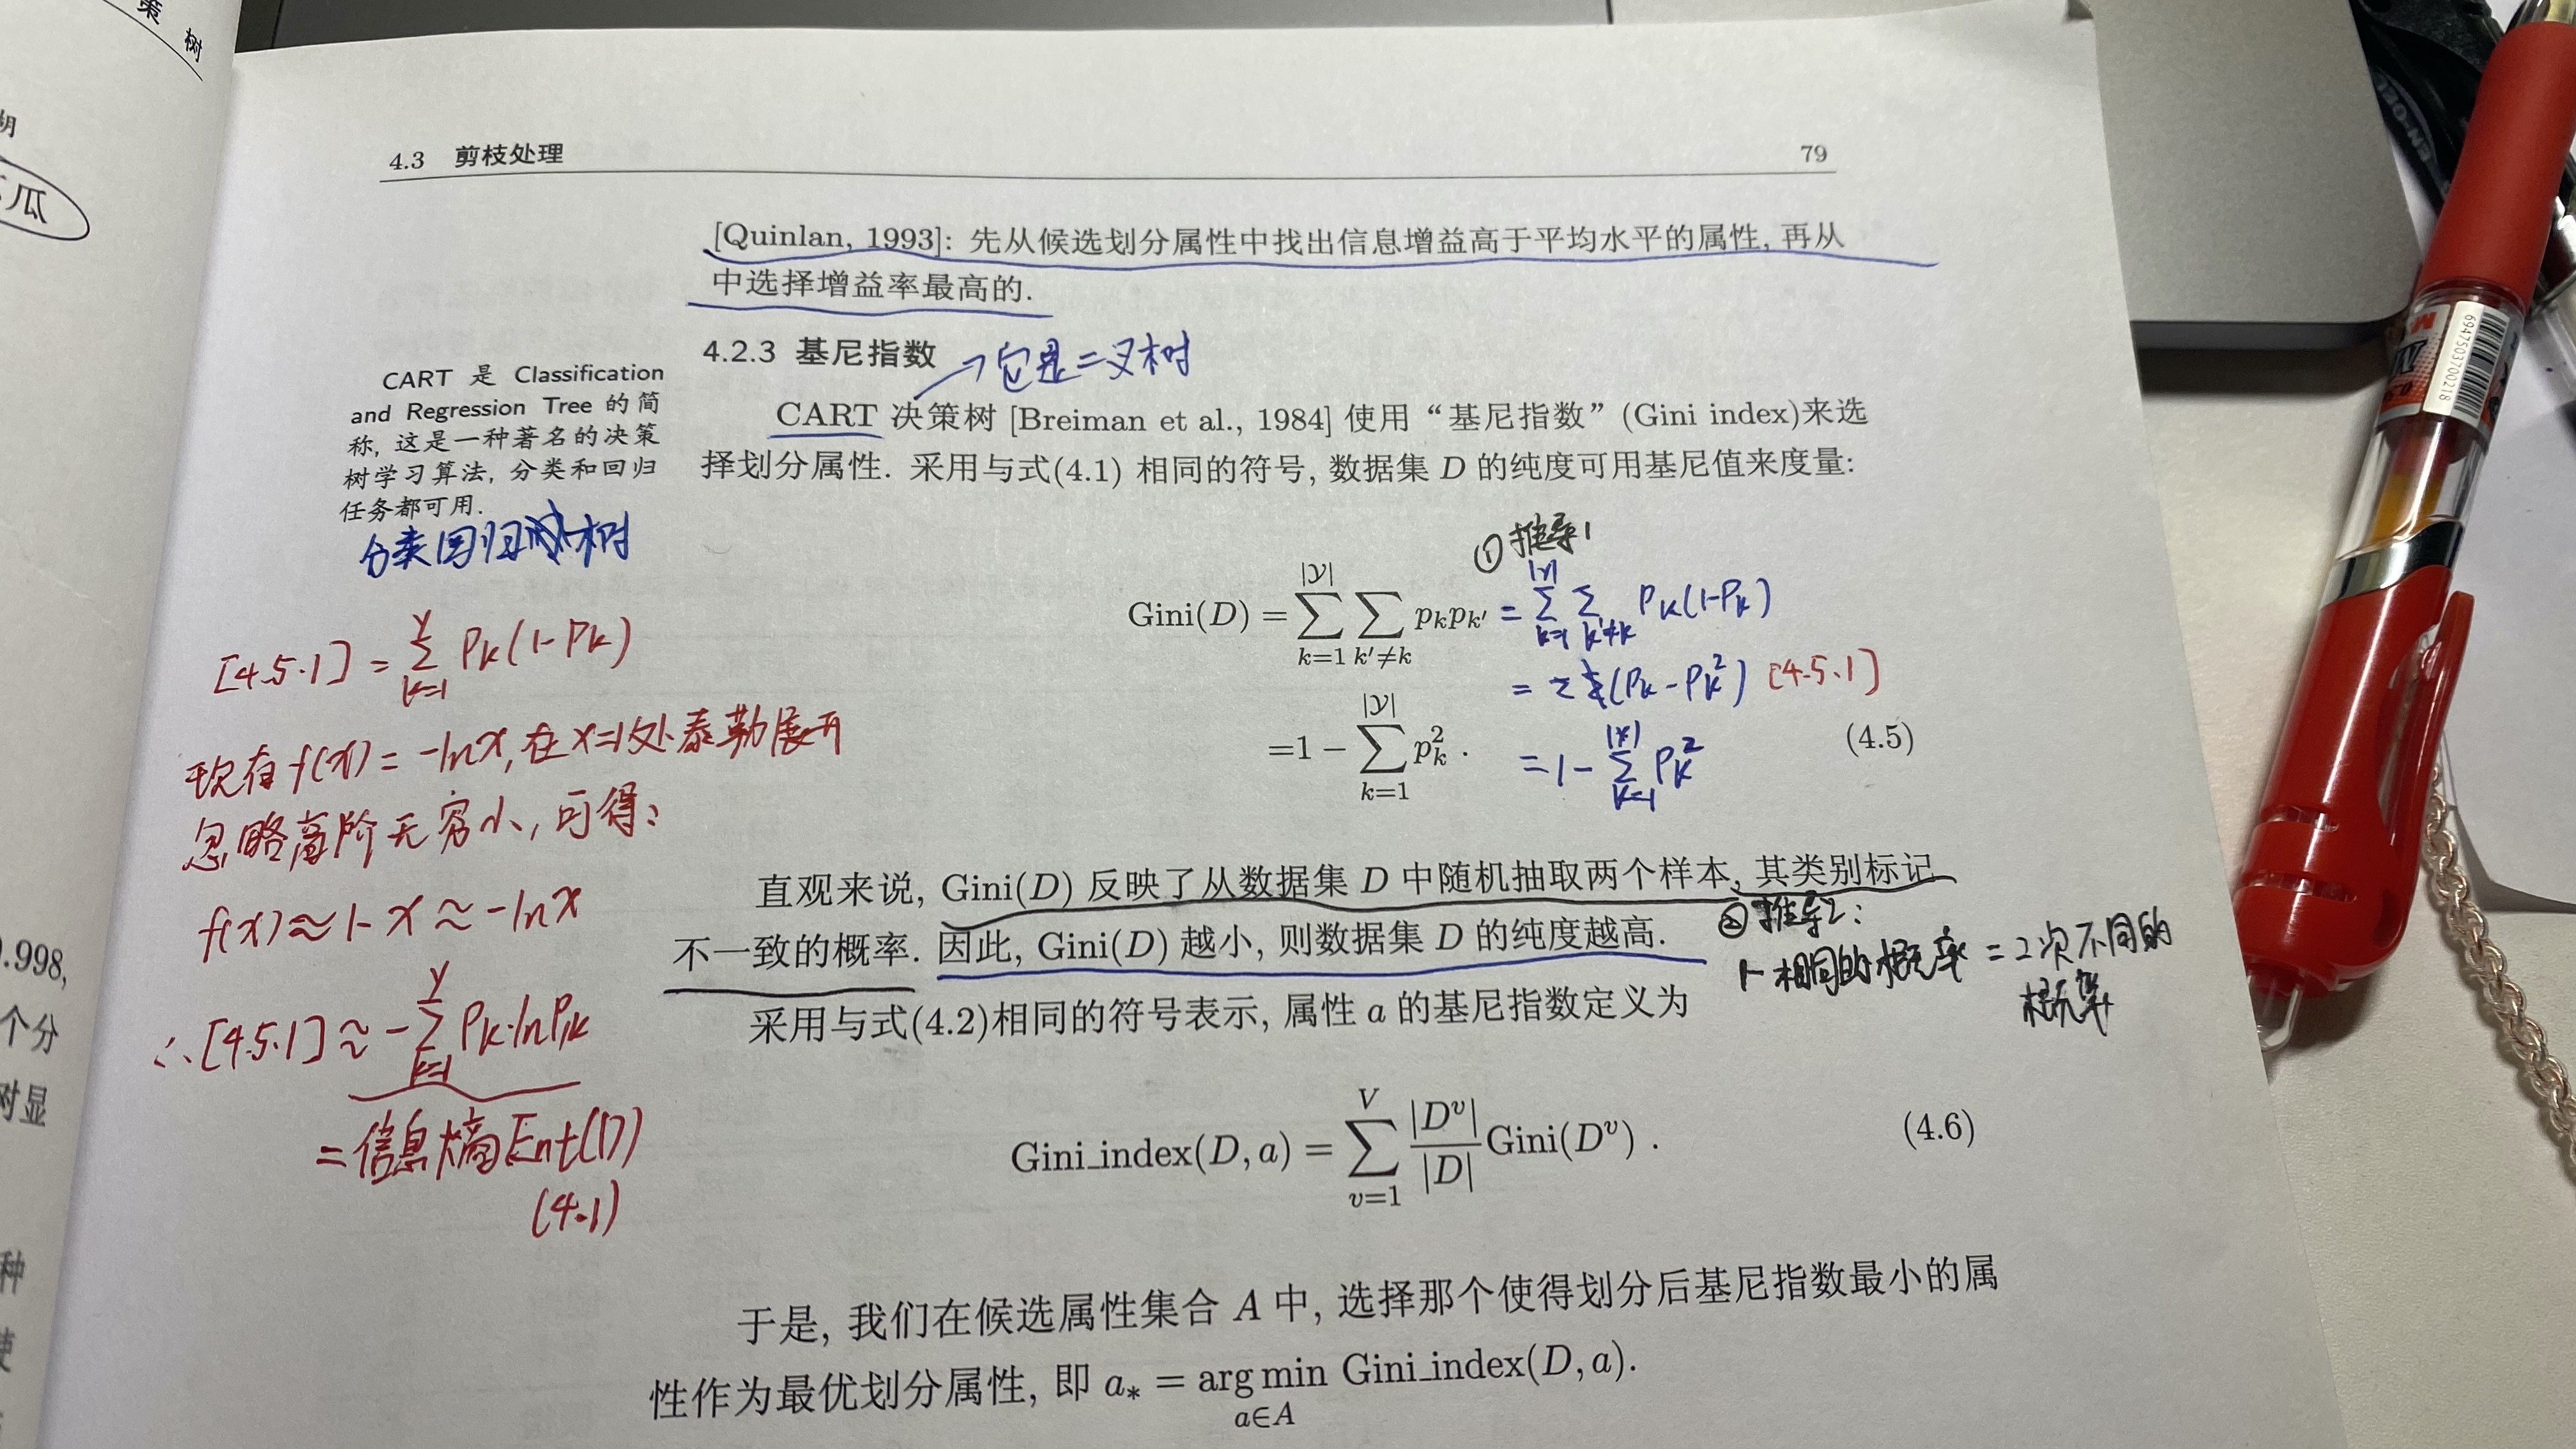 策
树
瓜
4.3 剪枝处理
79
[Quinlan, 1993]: 先从候选划分属性中找出信息增益高于平均水平的属性, 再从
中选择增益率最高的.
4.2.3 基尼指数
→它是二叉树
CART 是 Classification
and Regression Tree 的简
称, 这是一种著名的决策
树学习算法, 分类和回归
任务都可用.
分类回归树
CART 决策树 [Breiman et al., 1984] 使用“基尼指数” (Gini index)来选
择划分属性. 采用与式(4.1) 相同的符号, 数据集 D 的纯度可用基尼值来度量:
① 推导1
Gini(D) = ∑_{k=1}^{|𝒴|} ∑_{k′≠k} p_k p_{k′} = ∑_{k=1}^{|y|} ∑_{k′≠k} P_k(1-P_k)
= (P_k - P_k²) [4.5.1]
= 1 − ∑_{k=1}^{|𝒴|} p_k² . = 1 - ∑_{k=1}^{|y|} P_k² (4.5)
[4.5.1] = ∑_{k=1}^{y} P_k(1-P_k)
现有 f(x) = -lnx, 在 x=1处泰勒展开
忽略高阶无穷小, 可得:
f(x) ≈ 1-x ≈ -lnx
∴ [4.5.1] ≈ -∑_{k=1}^{y} P_k·lnP_k
= 信息熵Ent(D)
(4.1)
直观来说, Gini(D) 反映了从数据集 D 中随机抽取两个样本, 其类别标记
不一致的概率. 因此, Gini(D) 越小, 则数据集 D 的纯度越高.
② 推导2:
1-相同的概率 = 2次不同的
概率
采用与式(4.2)相同的符号表示, 属性 a 的基尼指数定义为
Gini_index(D, a) = ∑_{v=1}^{V} |D^v|/|D| Gini(D^v) . (4.6)
于是, 我们在候选属性集合 A 中, 选择那个使得划分后基尼指数最小的属
性作为最优划分属性, 即 a_* = arg min_{a∈A} Gini_index(D, a).
0.998,
个分
时显
种
6947503700218